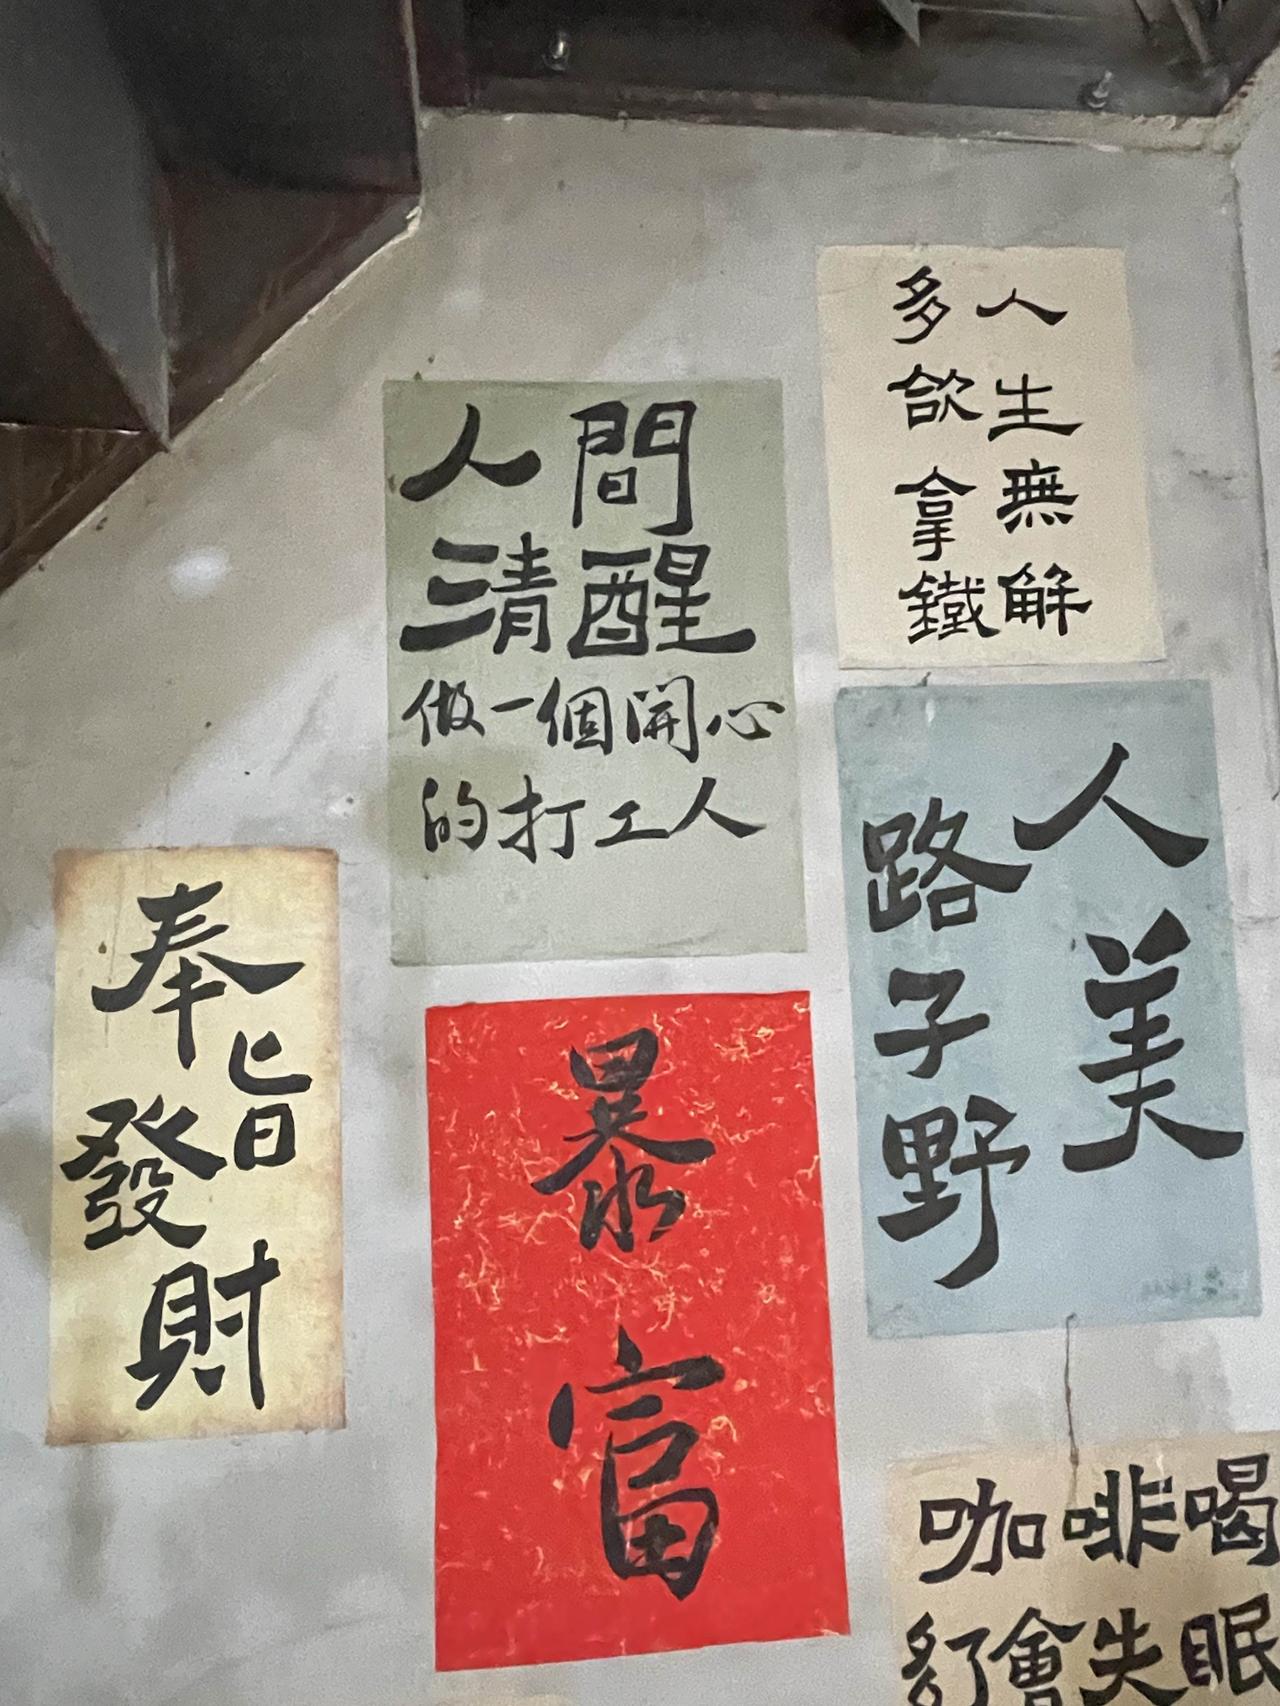 人生無解
多飲拿鐵
人間
清醒
做一個開心
的打工人
人美
路子野
奉旨
發財
暴富
咖啡喝
多了會失眠